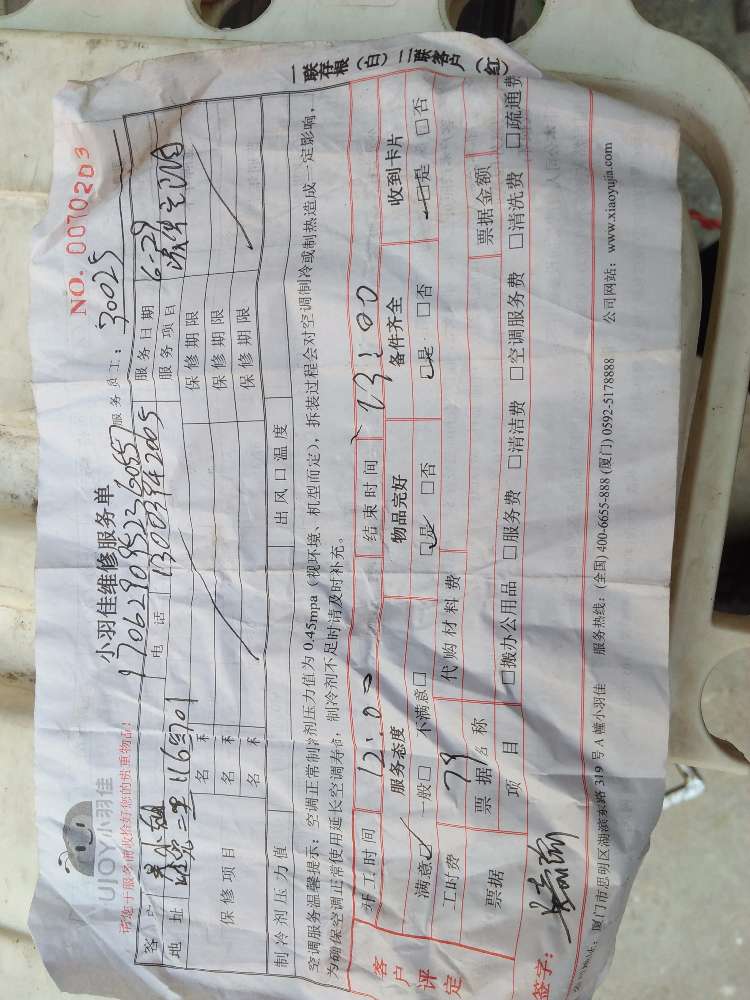 UJOY小羽佳
小羽佳维修服务单
NO. 0070203
请您于服务前收拾好您的贵重物品!
1706290952360557
服务员工: 30025
客户 小姐
电话 13003942005
服务日期 6-29
地址 116号701
服务项目
保修项目
名称
保修期限
名称
保修期限
名称
保修期限
制冷剂压力值
出风口温度
空调服务温馨提示: 空调正常制冷剂压力值为0.45mpa (视环境、机型而定), 拆装过程会对空调制冷或制热造成一定影响,
为确保空调正常使用延长空调寿命, 制冷剂不足时请及时补充。
客户评定
开工时间 12:00
结束时间 13:00
服务态度
物品完好
备件齐全
收到卡片
满意☑ 一般□ 不满意□
☑是 □否
☑是 □否
☑是 □否
工时费 79
代购材料费
票据
票据名称
票据金额
项目
□搬办公用品 □服务费 □清洁费 □空调服务费 □清洗费 □疏通费
签字:
厦门市思明区湖滨东路319号A幢小羽佳 服务热线: (全国) 400-6655-888 (厦门) 0592-5178888 公司网站: www.xiaoyujia.com
一联存根 (白) 二联客户 (红)